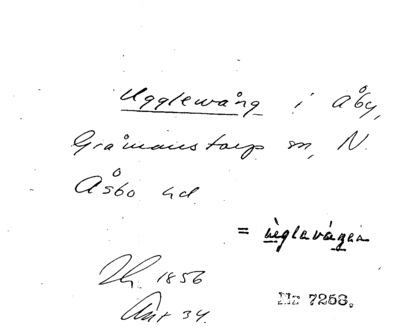 Ugglewång i Åby,
Gråmanstorps sn, N.
Åsbo hd
= ùglavágen
1856
34.
Nr 7256.